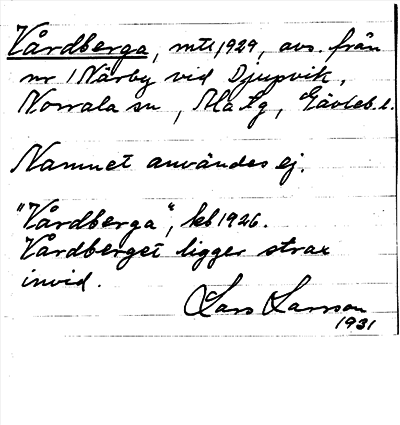 Vårdberga, mtl 1929, avs. från
nr 1 Närby vid Djupvik,
Norrala sn, Ala tg, Gävleb. l.
Namnet användes ej.
"Vårdberga", kb 1926.
Vårdberget ligger strax
invid.
Lars Larsson
1931